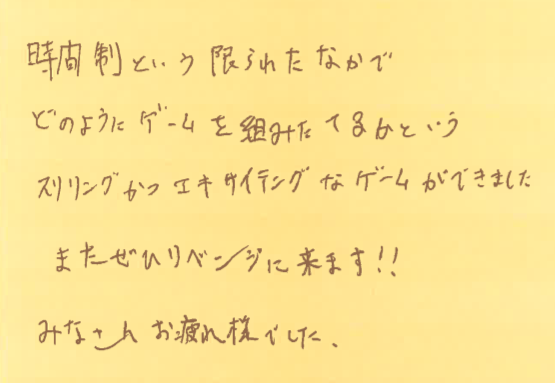 時間制という限られたなかで
どのようにゲームを組みたてるかという
スリリングかつエキサイティングなゲームができました
またぜひリベンジに来ます!!
みなさんお疲れ様でした、